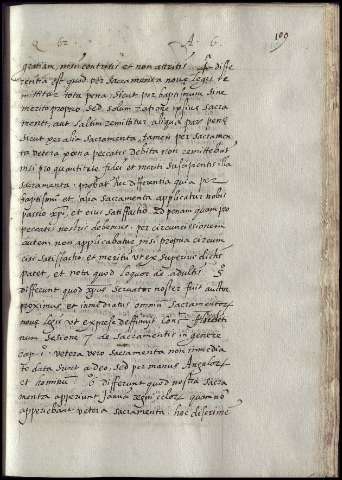 Q. 62. A. 6. 109
gratiam, nisi contritis et non attritis. diffe
rentia est quod per sacramenta novæ legis re
mittitur tota pena, sicut per baptismum sine
merito proprio, sed solum ratione ipsius sacra
menti, aut saltim remittitur aliqua pars penæ
sicut per alia sacramenta, tamen per sacramen
ta vetera pœna peccatis debita non remittebat
nisi pro quantitate fidei et meriti suscipientis illa
sacramenta. probat hæc differentia quia per
baptismum et alia sacramenta applicatur nobis
passio xpi, et eius satisfactio ad penam quam pro
peccatis nostris debemus, per circuncisionem
autem non applicabatur nisi propria circun
cisi satisfactio et meritum ut ex superius dictis
patet, et nota quod loquor de adultis.
differunt quod xpus servator noster fuit author
proximus et immediatus omnium sacramentorum
novæ legis ut expresse deffinivit conc.
num sessione 7 de sacramentis in genere
cap. 1. vetera vero sacramenta non immedia
te data sunt a deo, sed per manus Angelorum
et hominum. differunt quod nostra sacra
menta aperiunt januam regni celorum quam non
aperiebant vetera sacramenta. hoc discrimen